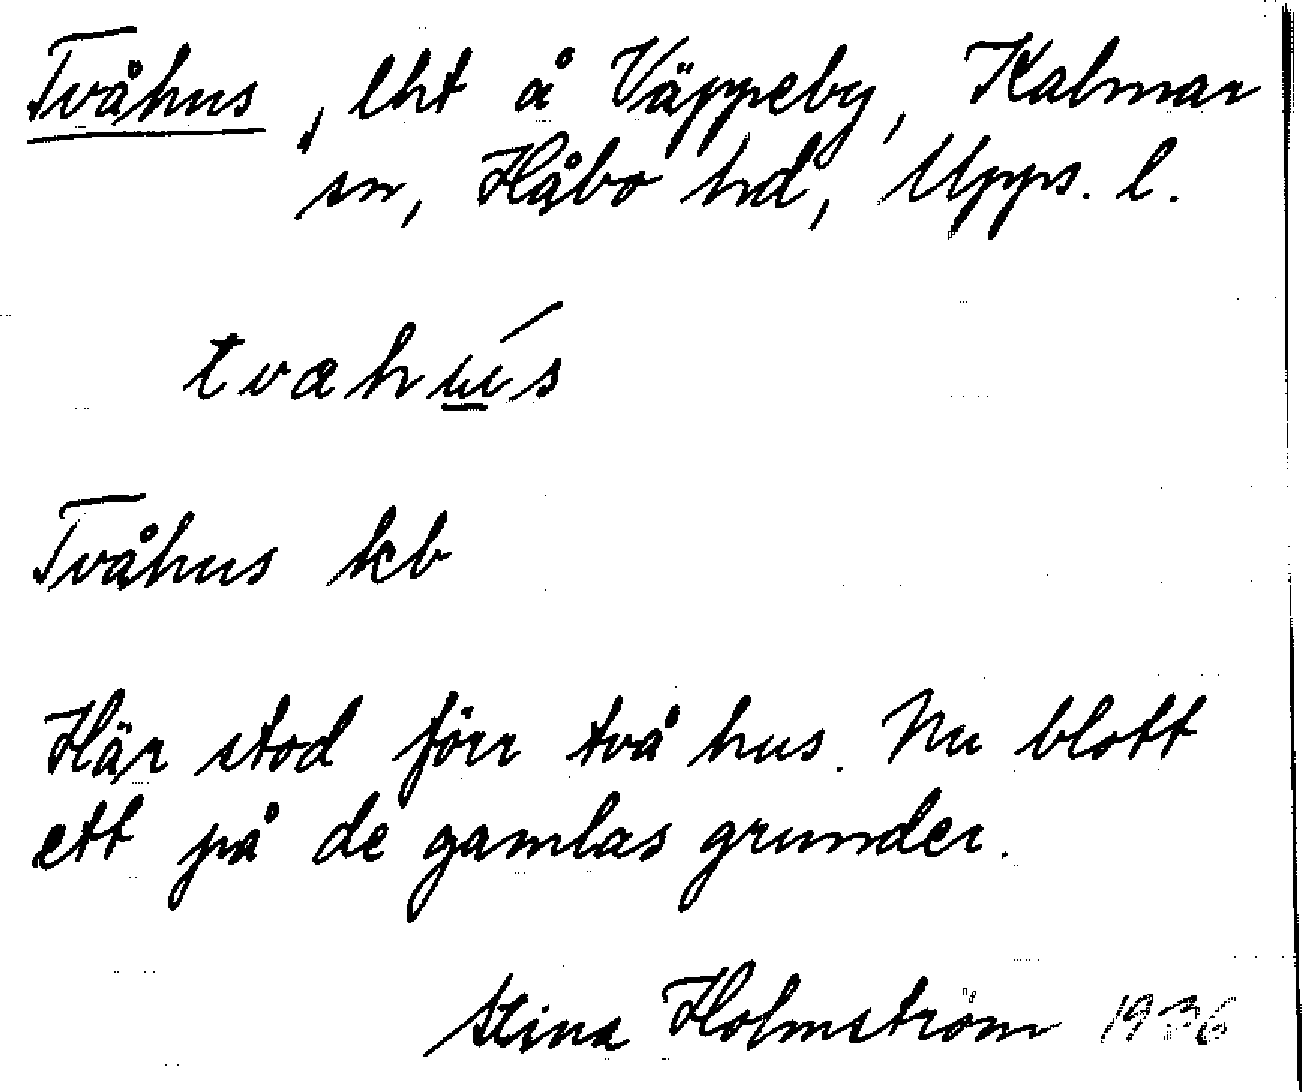 Tvåhus, lht å Väppeby, Kalmar
sn, Håbo hd, Upps. l.
tvæhu̲ś
Tvåhus kb
Här stod förr två hus. Nu blott
ett på de gamlas grunder.
Stina Holmström 1936